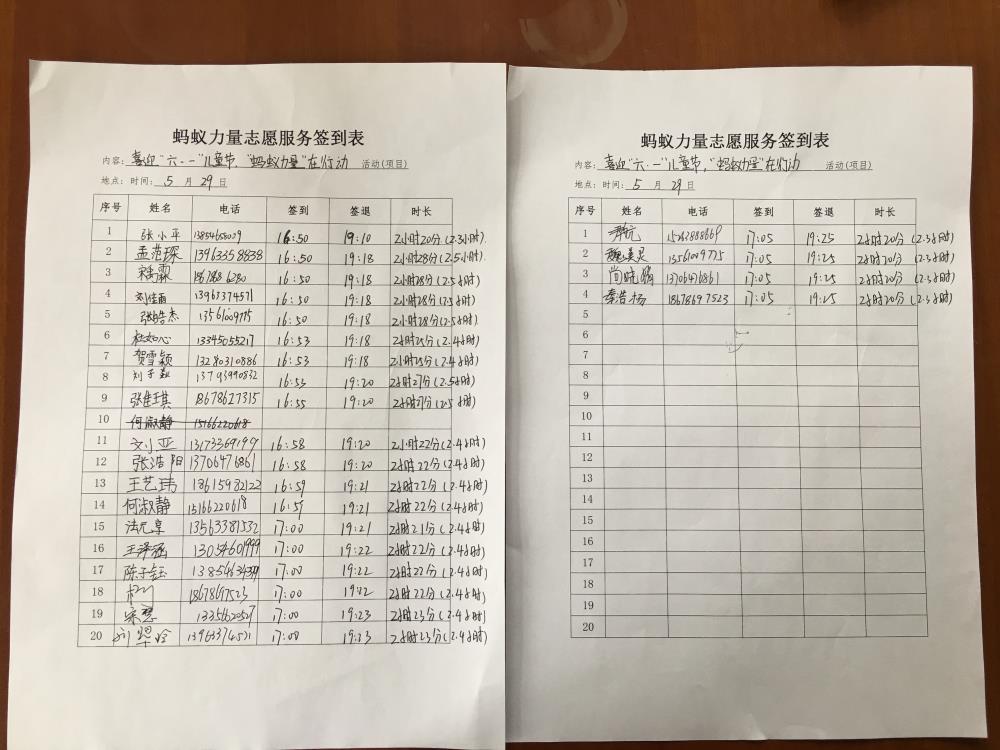 蚂蚁力量志愿服务签到表
内容：喜迎"六·一"儿童节，"蚂蚁力量"在行动 活动(项目)
地点：时间： 5 月 29 日
序号 姓名 电话 签到 签退 时长
1 张小平 16:50 19:10 2小时20分(2.3小时)
2 13963358838 16:50 19:18 2小时28分(2.5小时)
3 16:50 19:18 2小时28分(2.5小时)
4 刘佳雨 13963374571 16:50 19:18 2小时28分(2.5小时)
5 张皓杰 13561009775 16:50 19:18 2小时28分(2.5小时)
6 杜如心 13345055217 16:53 19:18 2小时25分(2.4小时)
7 贺雪颖 13280310886 16:53 19:18 2小时25分(2.4小时)
8 13793990832 16:55 19:20 2小时27分(2.5小时)
9 张佳琪 18678627315 16:55 19:20 2小时27分(2.5小时)
10 何淑静 15166220618
11 刘小亚 13173369199 16:58 19:20 2小时22分(2.4小时)
12 张浩阳 13706476861 16:58 19:20 2小时22分(2.4小时)
13 王艺玮 18615982122 16:59 19:21 2小时22分(2.4小时)
14 何淑静 15166220618 16:59 19:21 2小时22分(2.4小时)
15 法元享 13563381532 17:00 19:21 2小时21分(2.4小时)
16 王泽涵 13054601999 17:00 19:22 2小时22分(2.4小时)
17 陈子钰 17:00 19:22 2小时22分(2.4小时)
18 17:00 19:22 2小时22分(2.4小时)
19 17:00 19:23 2小时23分(2.4小时)
20 17:00 19:23 2小时23分(2.4小时)
蚂蚁力量志愿服务签到表
内容：喜迎"六·一"儿童节，"蚂蚁力量"在行动 活动(项目)
地点：时间： 5 月 29 日
序号 姓名 电话 签到 签退 时长
1 17:05 19:25 2小时20分(2.3小时)
2 13561009775 17:05 19:25 2小时20分(2.3小时)
3 13706476861 17:05 19:25 2小时20分(2.3小时)
4 秦浩杨 18678697523 17:05 19:25 2小时20分(2.3小时)
5
6
7
8
9
10
11
12
13
14
15
16
17
18
19
20